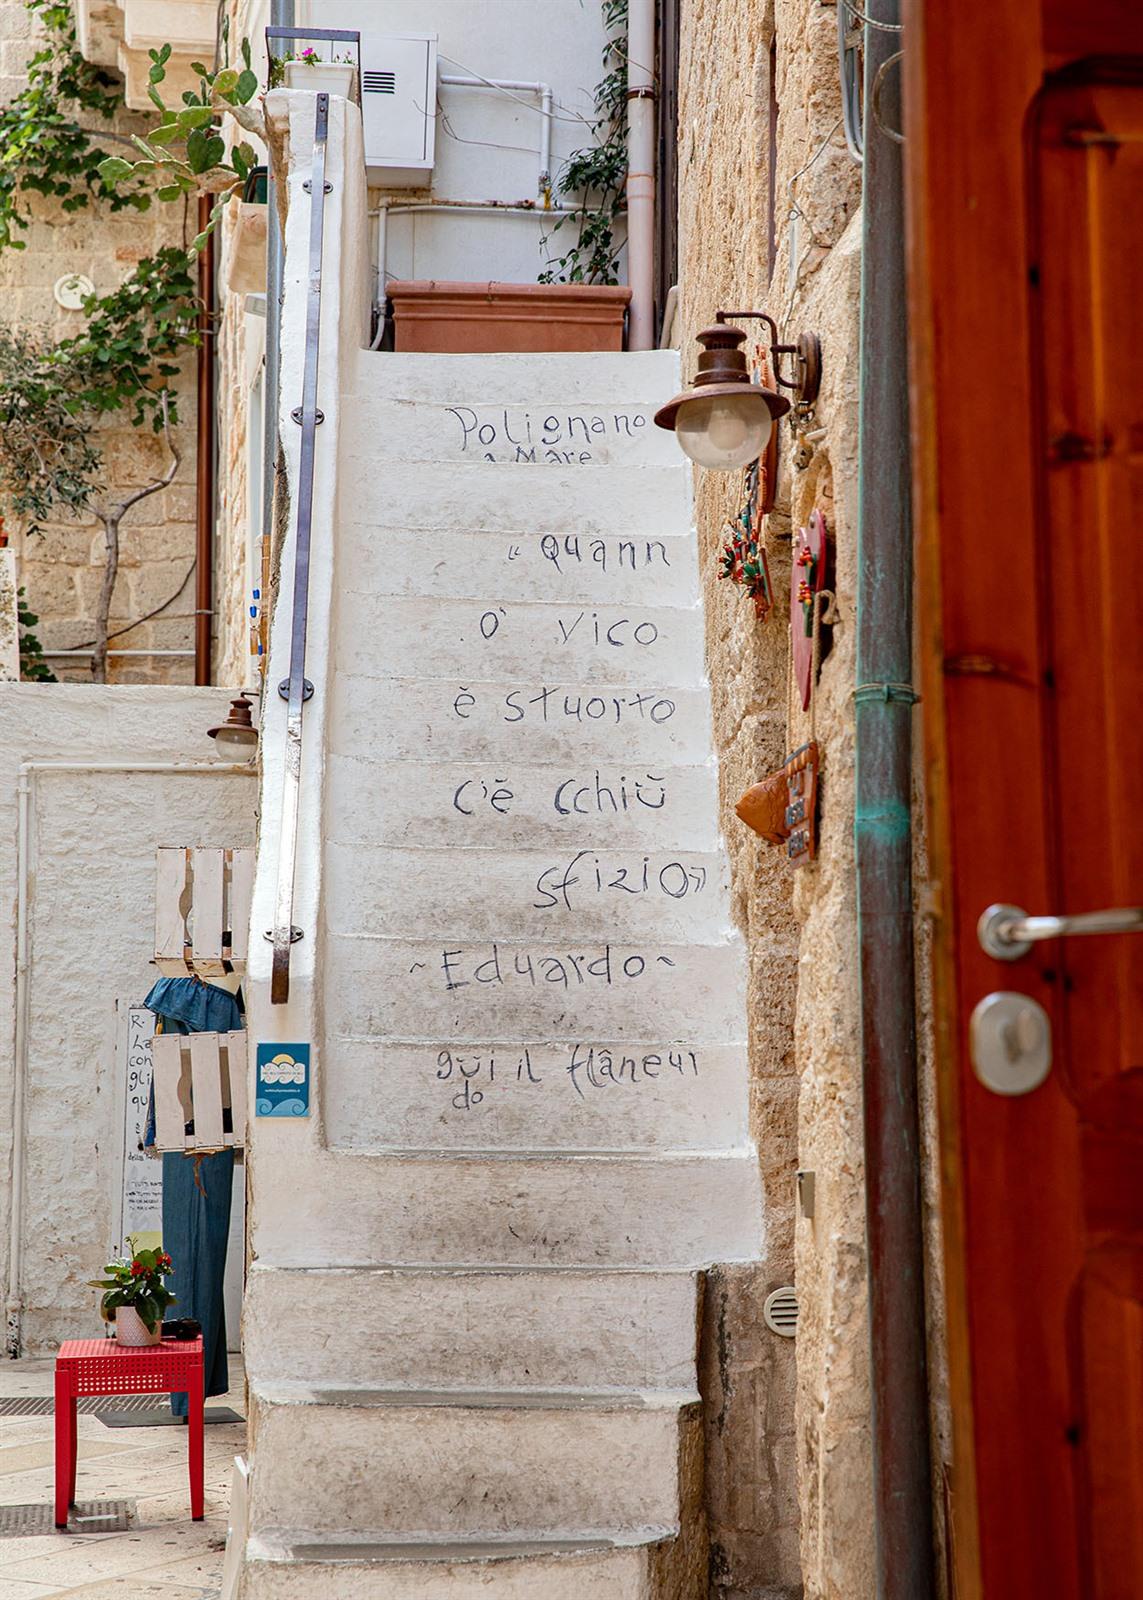 Polignano
a Mare
“ Quann
O' vico
è stuorto
c'è cchiù
sfizio”
~ Eduardo ~
gùi il flâneur
do
R.
La
con
gli
qu
è